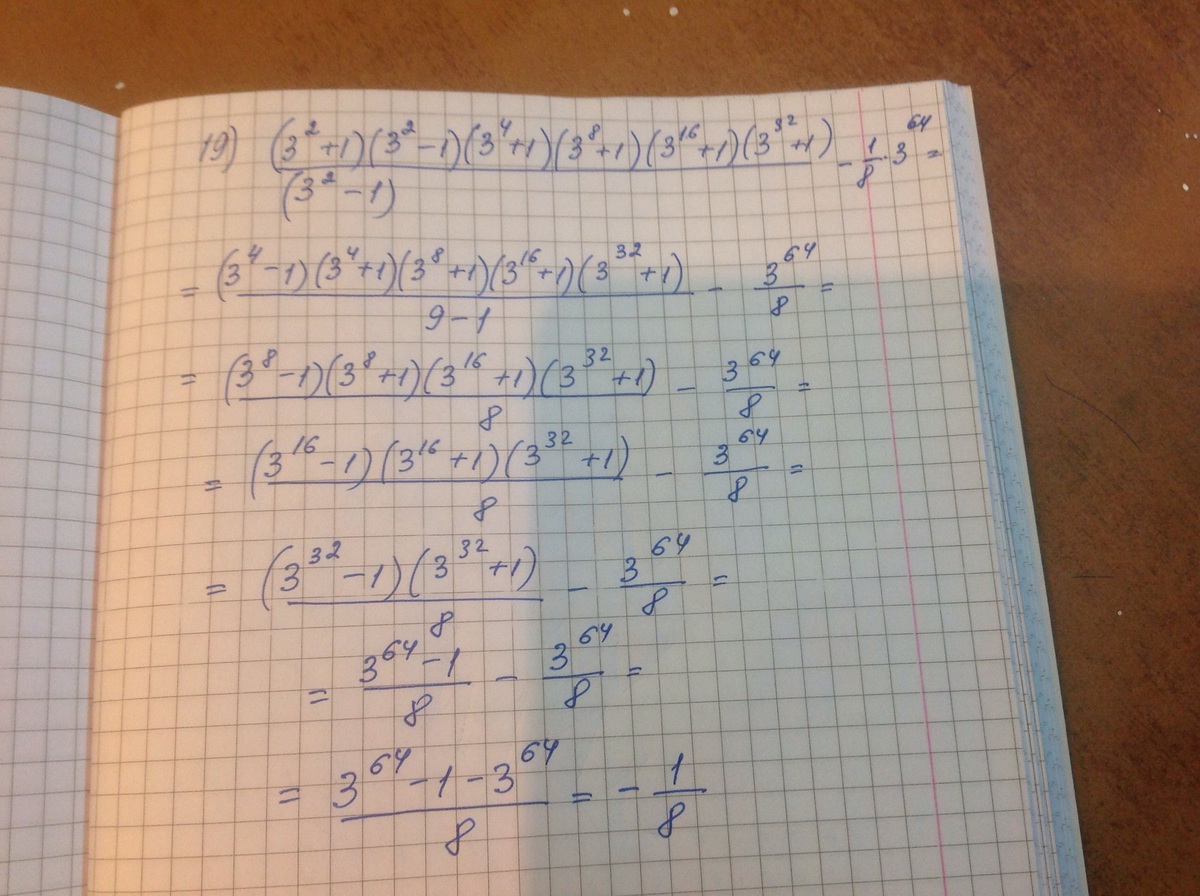 19) (3²+1)(3²-1)(3⁴+1)(3⁸+1)(3¹⁶+1)(3³²+1)/(3²-1) - 1/8·3⁶⁴=
= (3⁴-1)(3⁴+1)(3⁸+1)(3¹⁶+1)(3³²+1)/9-1 - 3⁶⁴/8 =
= (3⁸-1)(3⁸+1)(3¹⁶+1)(3³²+1)/8 - 3⁶⁴/8 =
= (3¹⁶-1)(3¹⁶+1)(3³²+1)/8 - 3⁶⁴/8 =
= (3³²-1)(3³²+1)/8 - 3⁶⁴/8 =
= 3⁶⁴-1/8 - 3⁶⁴/8 =
= 3⁶⁴-1-3⁶⁴/8 = -1/8